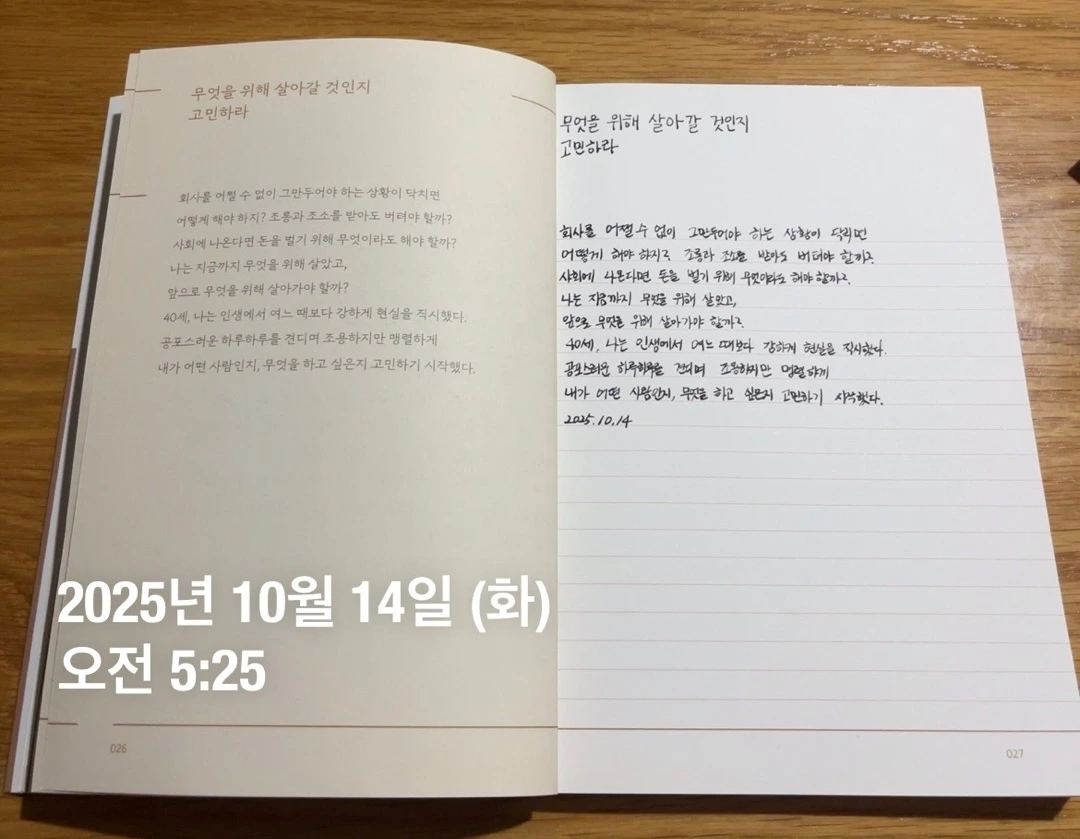 무엇을 위해 살아갈 것인지
고민하라
회사를 어쩔 수 없이 그만두어야 하는 상황이 닥치면
어떻게 해야 하지? 조롱과 조소를 받아도 버텨야 할까?
사회에 나온다면 돈을 벌기 위해 무엇이라도 해야 할까?
나는 지금까지 무엇을 위해 살았고,
앞으로 무엇을 위해 살아가야 할까?
40세, 나는 인생에서 여느 때보다 강하게 현실을 직시했다.
공포스러운 하루하루를 견디며 조용하지만 맹렬하게
내가 어떤 사람인지, 무엇을 하고 싶은지 고민하기 시작했다.
2025년 10월 14일 (화)
오전 5:25
026
무엇을 위해 살아갈 것인지
고민하라
회사를 어쩔 수 없이 그만두어야 하는 상황이 닥치면
어떻게 해야 하지? 조롱과 조소를 받아도 버텨야 할까?
사회에 나온다면 돈을 벌기 위해 무엇이라도 해야 할까?
나는 지금까지 무엇을 위해 살았고,
앞으로 무엇을 위해 살아가야 할까?
40세, 나는 인생에서 여느 때보다 강하게 현실을 직시했다.
공포스러운 하루하루를 견디며 조용하지만 맹렬하게
내가 어떤 사람인지, 무엇을 하고 싶은지 고민하기 시작했다.
2025.10.14
027